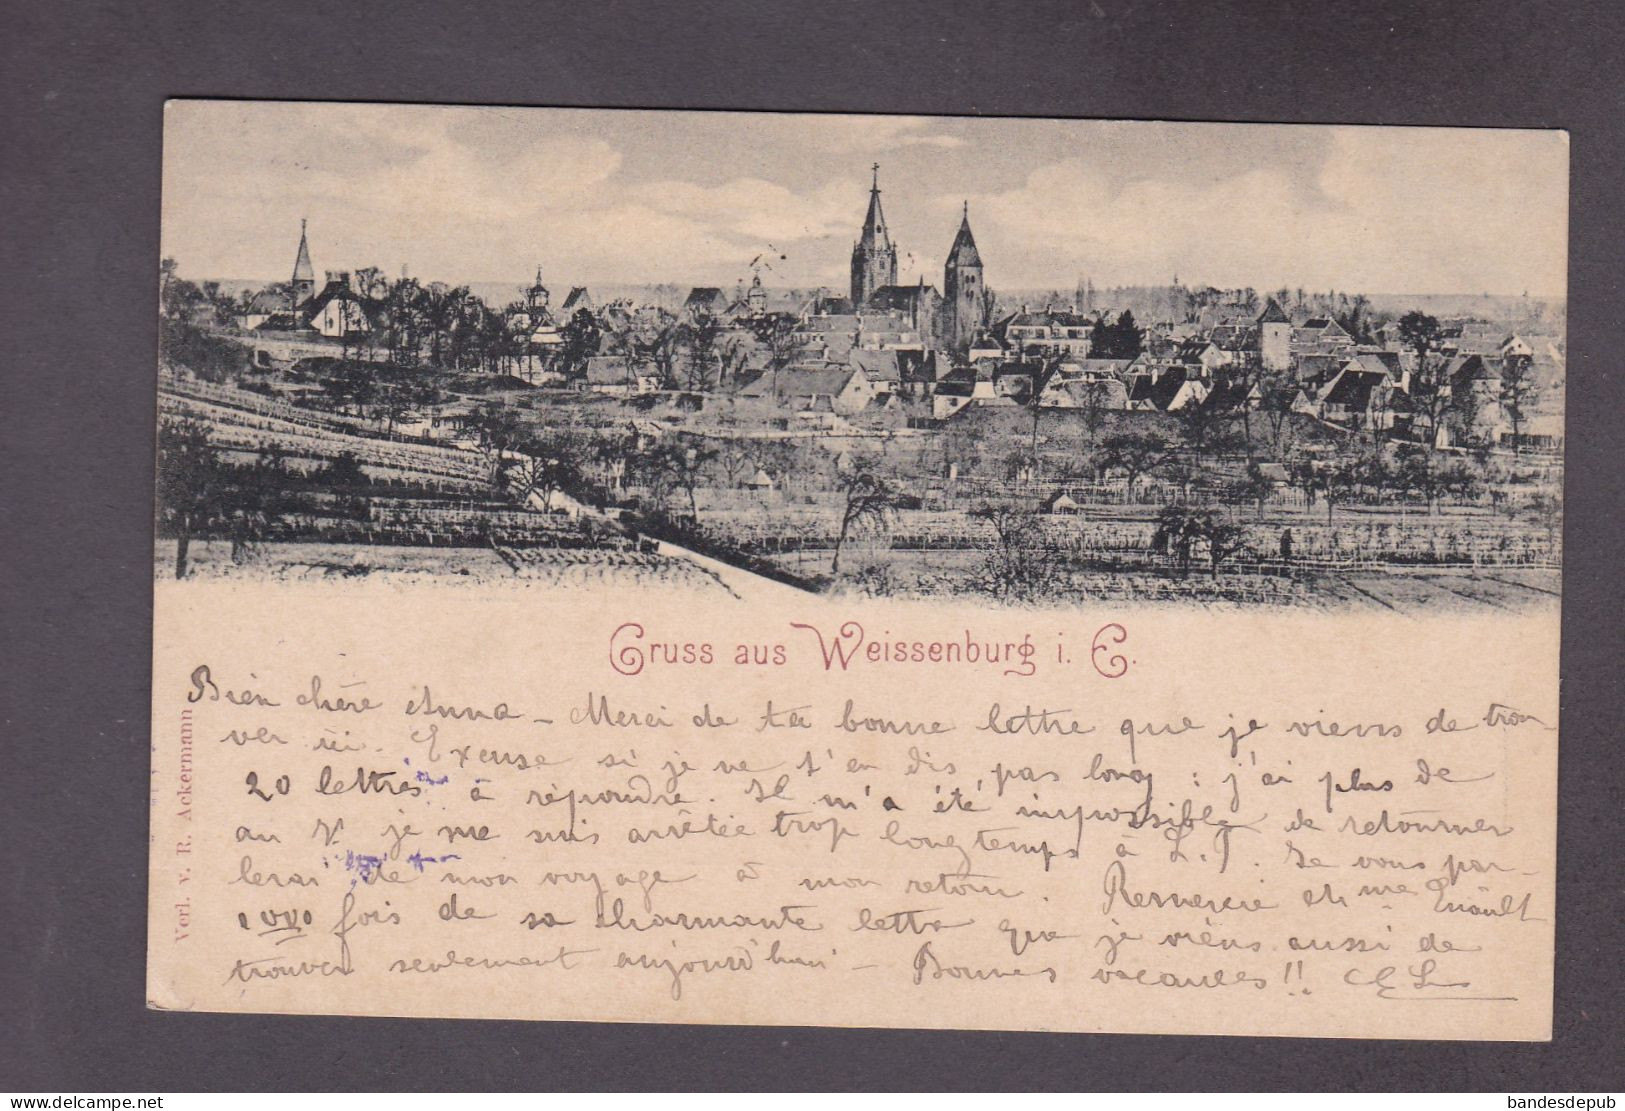 Gruss aus Weissenburg i. E.
Verl. v. R. Ackermann
Bien chère Anna - Merci de ta bonne lettre que je viens de trou-
ver ici. Excuse si je ne t'en dis pas long : j'ai plus de
20 lettres à répondre. Il m'a été impossible de retourner
au V. je me suis arrêtée trop longtemps à L. T. Je vous par-
lerai de mon voyage à mon retour. Remercie et Mme
1000 fois de sa charmante lettre que je viens aussi de
trouver seulement aujourd'hui - Bonnes vacances !!
delcampe.net
bandesdepub